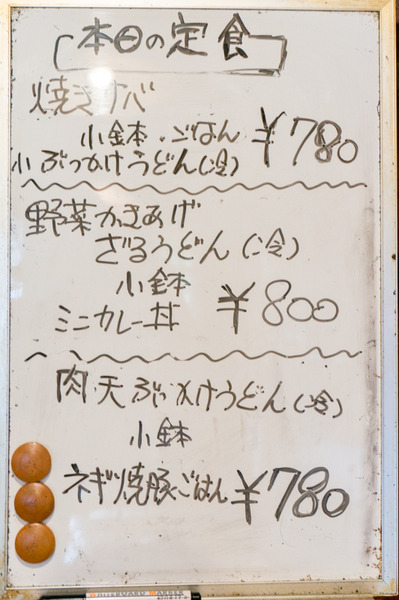 本日の定食
焼きサバ
小鉢・ごはん ¥780
小ぶっかけうどん(冷)
野菜かきあげ
ざるうどん(冷)
小鉢
ミニカレー丼 ¥800
肉天ぶっかけうどん(冷)
小鉢
ネギ焼豚ごはん ¥780
WHITEBOARD MARKER